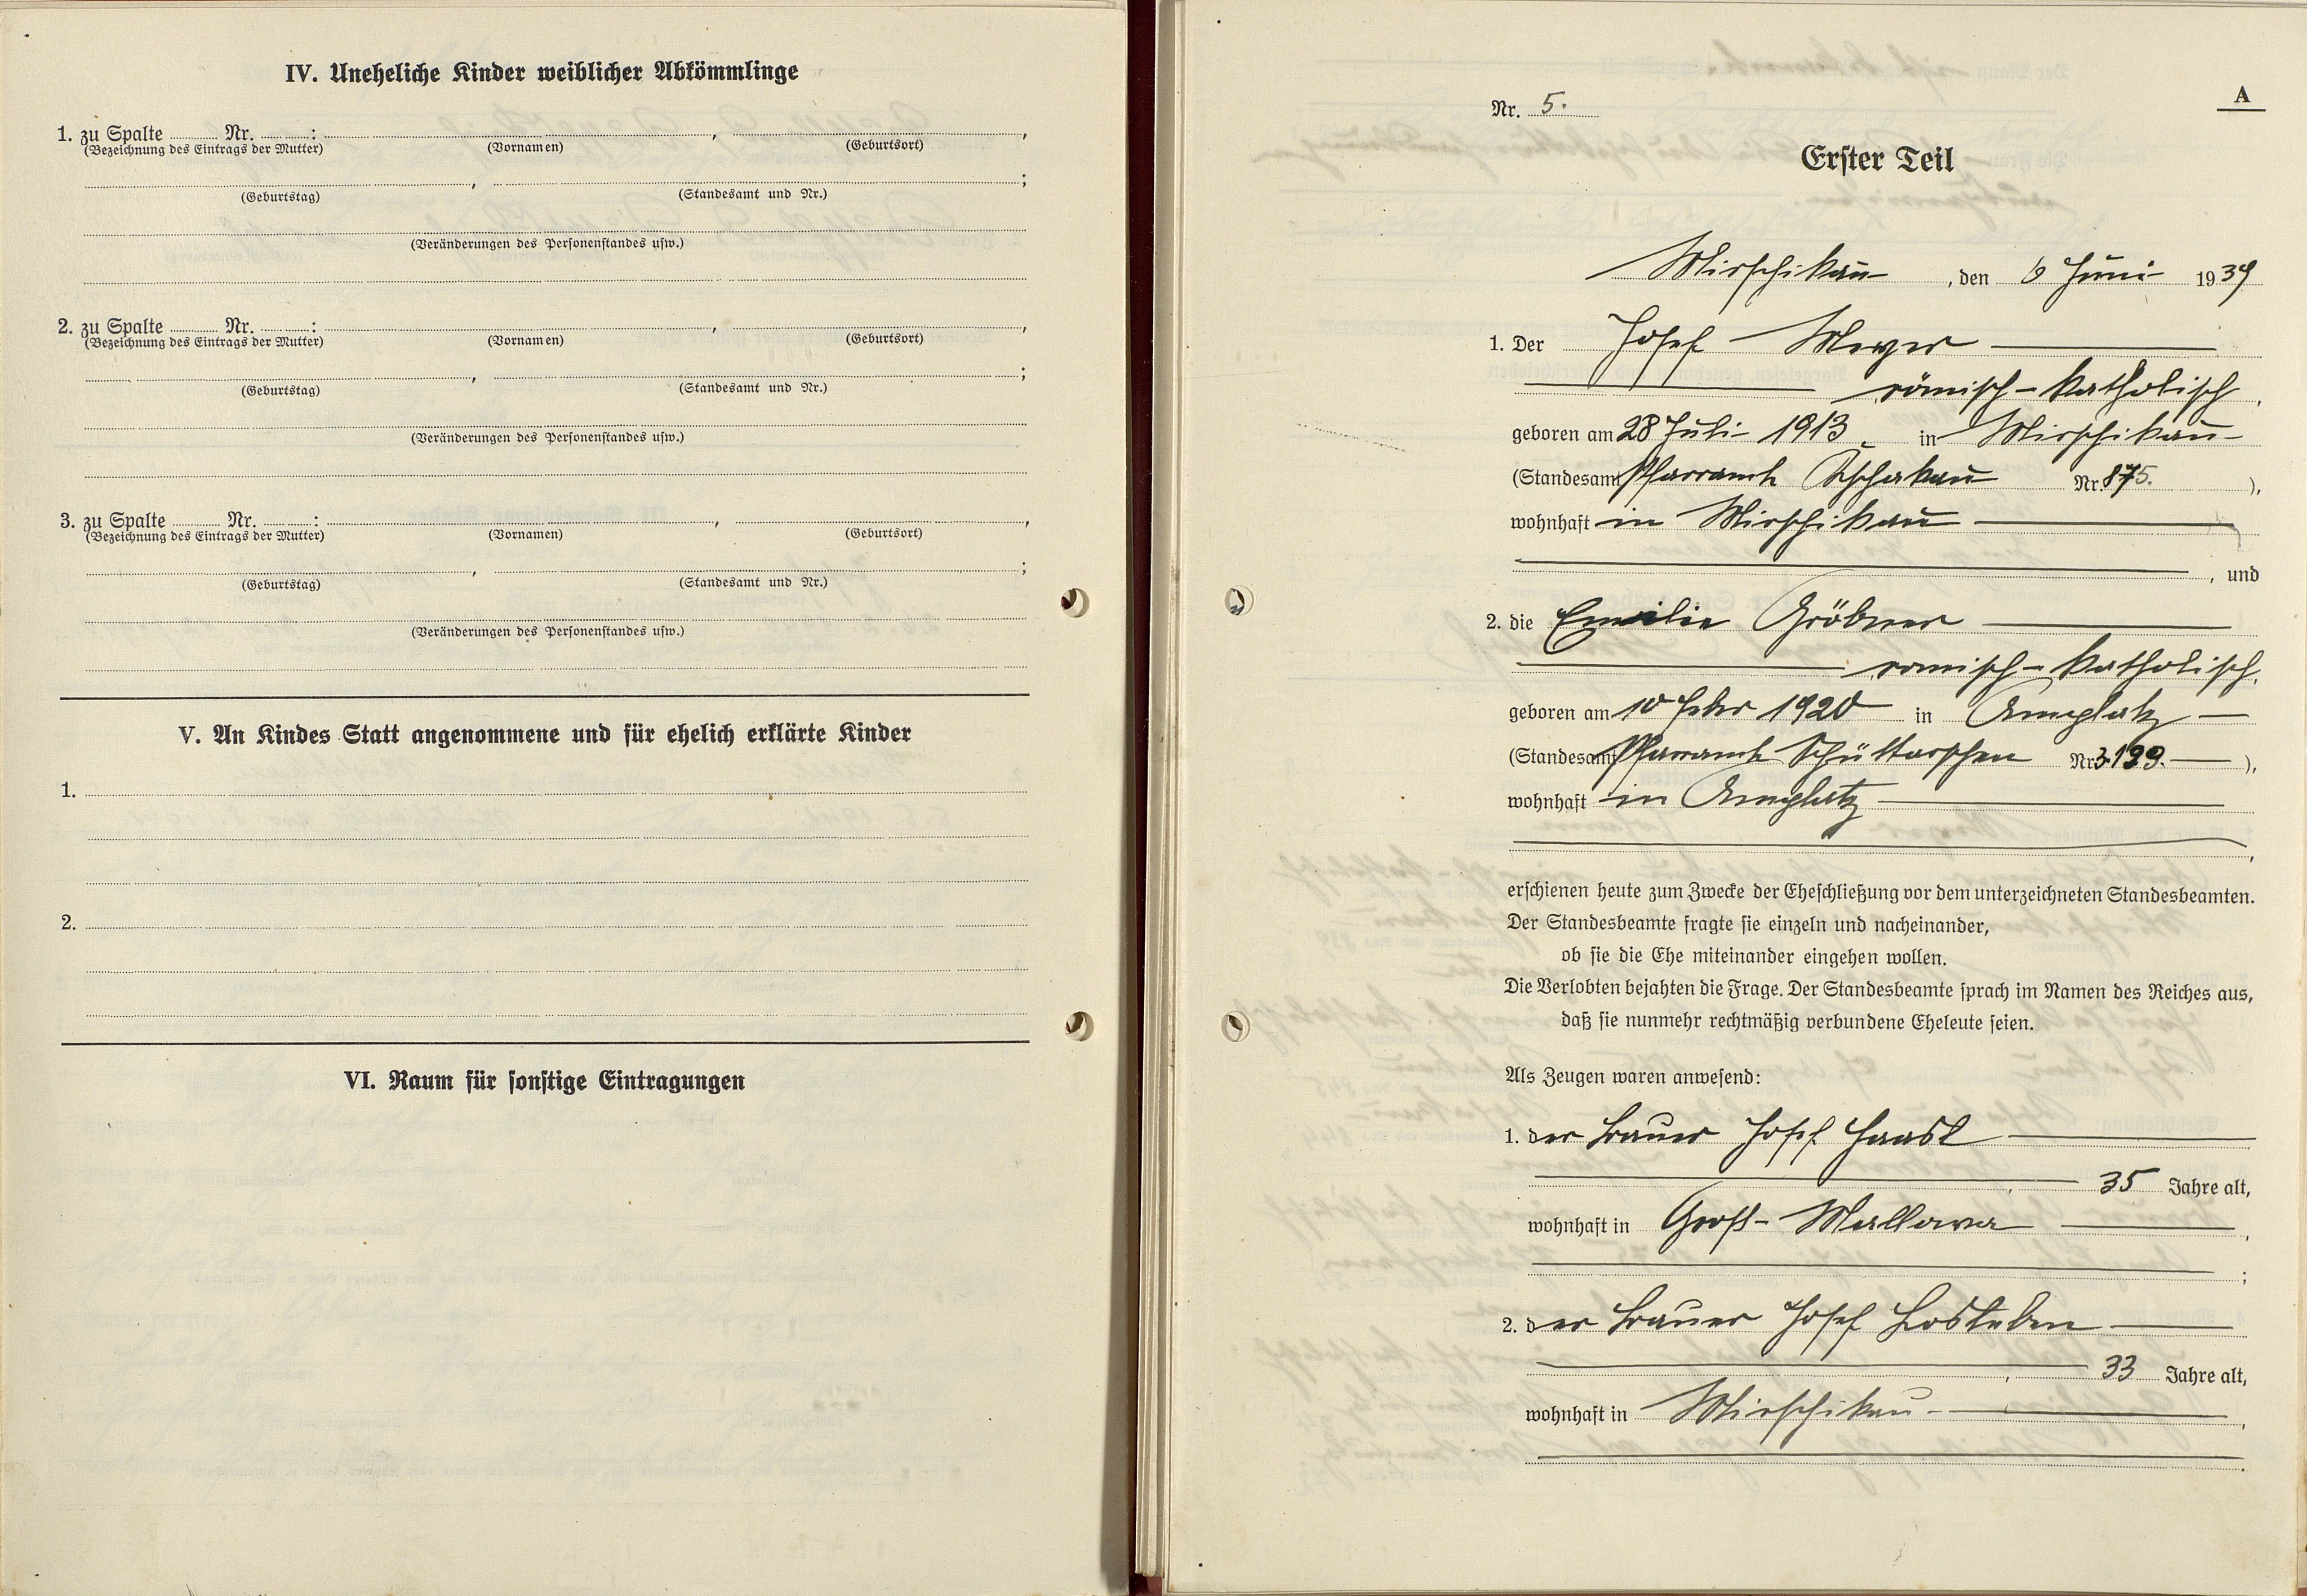 IV. Uneheliche Kinder weiblicher Abkömmlinge
1. zu Spalte ........ Nr. ........: ........, ........,
(Bezeichnung des Eintrags der Mutter) (Vornamen) (Geburtsort)
........, ........;
(Geburtstag) (Standesamt und Nr.)
(Veränderungen des Personenstandes usw.)
2. zu Spalte ........ Nr. ........: ........, ........,
(Bezeichnung des Eintrags der Mutter) (Vornamen) (Geburtsort)
........, ........;
(Geburtstag) (Standesamt und Nr.)
(Veränderungen des Personenstandes usw.)
3. zu Spalte ........ Nr. ........: ........, ........,
(Bezeichnung des Eintrags der Mutter) (Vornamen) (Geburtsort)
........, ........;
(Geburtstag) (Standesamt und Nr.)
(Veränderungen des Personenstandes usw.)
V. An Kindes Statt angenommene und für ehelich erklärte Kinder
1.
2.
VI. Raum für sonstige Eintragungen
A
Nr. 5.
Erster Teil
Mirschikau, den 6 Juni 1939
1. Der Josef Meyer
römisch-katholisch,
geboren am 28 Juli 1913, in Mirschikau
(Standesamt Pfarramt Nr. 875.),
wohnhaft in Mirschikau
, und
2. die Emilie Gröbner
römisch-katholisch,
geboren am 10 Feber 1920 in Amplatz
(Standesamt Pfarramt Schüttarschen Nr.),
wohnhaft in Amplatz
,
erschienen heute zum Zwecke der Eheschließung vor dem unterzeichneten Standesbeamten.
Der Standesbeamte fragte sie einzeln und nacheinander,
ob sie die Ehe miteinander eingehen wollen.
Die Verlobten bejahten die Frage. Der Standesbeamte sprach im Namen des Reiches aus,
daß sie nunmehr rechtmäßig verbundene Eheleute seien.
Als Zeugen waren anwesend:
1. der Bauer Josef
35 Jahre alt,
wohnhaft in Groß-Mallowa,
;
2. der Bauer Josef
33 Jahre alt,
wohnhaft in Mirschikau,
.